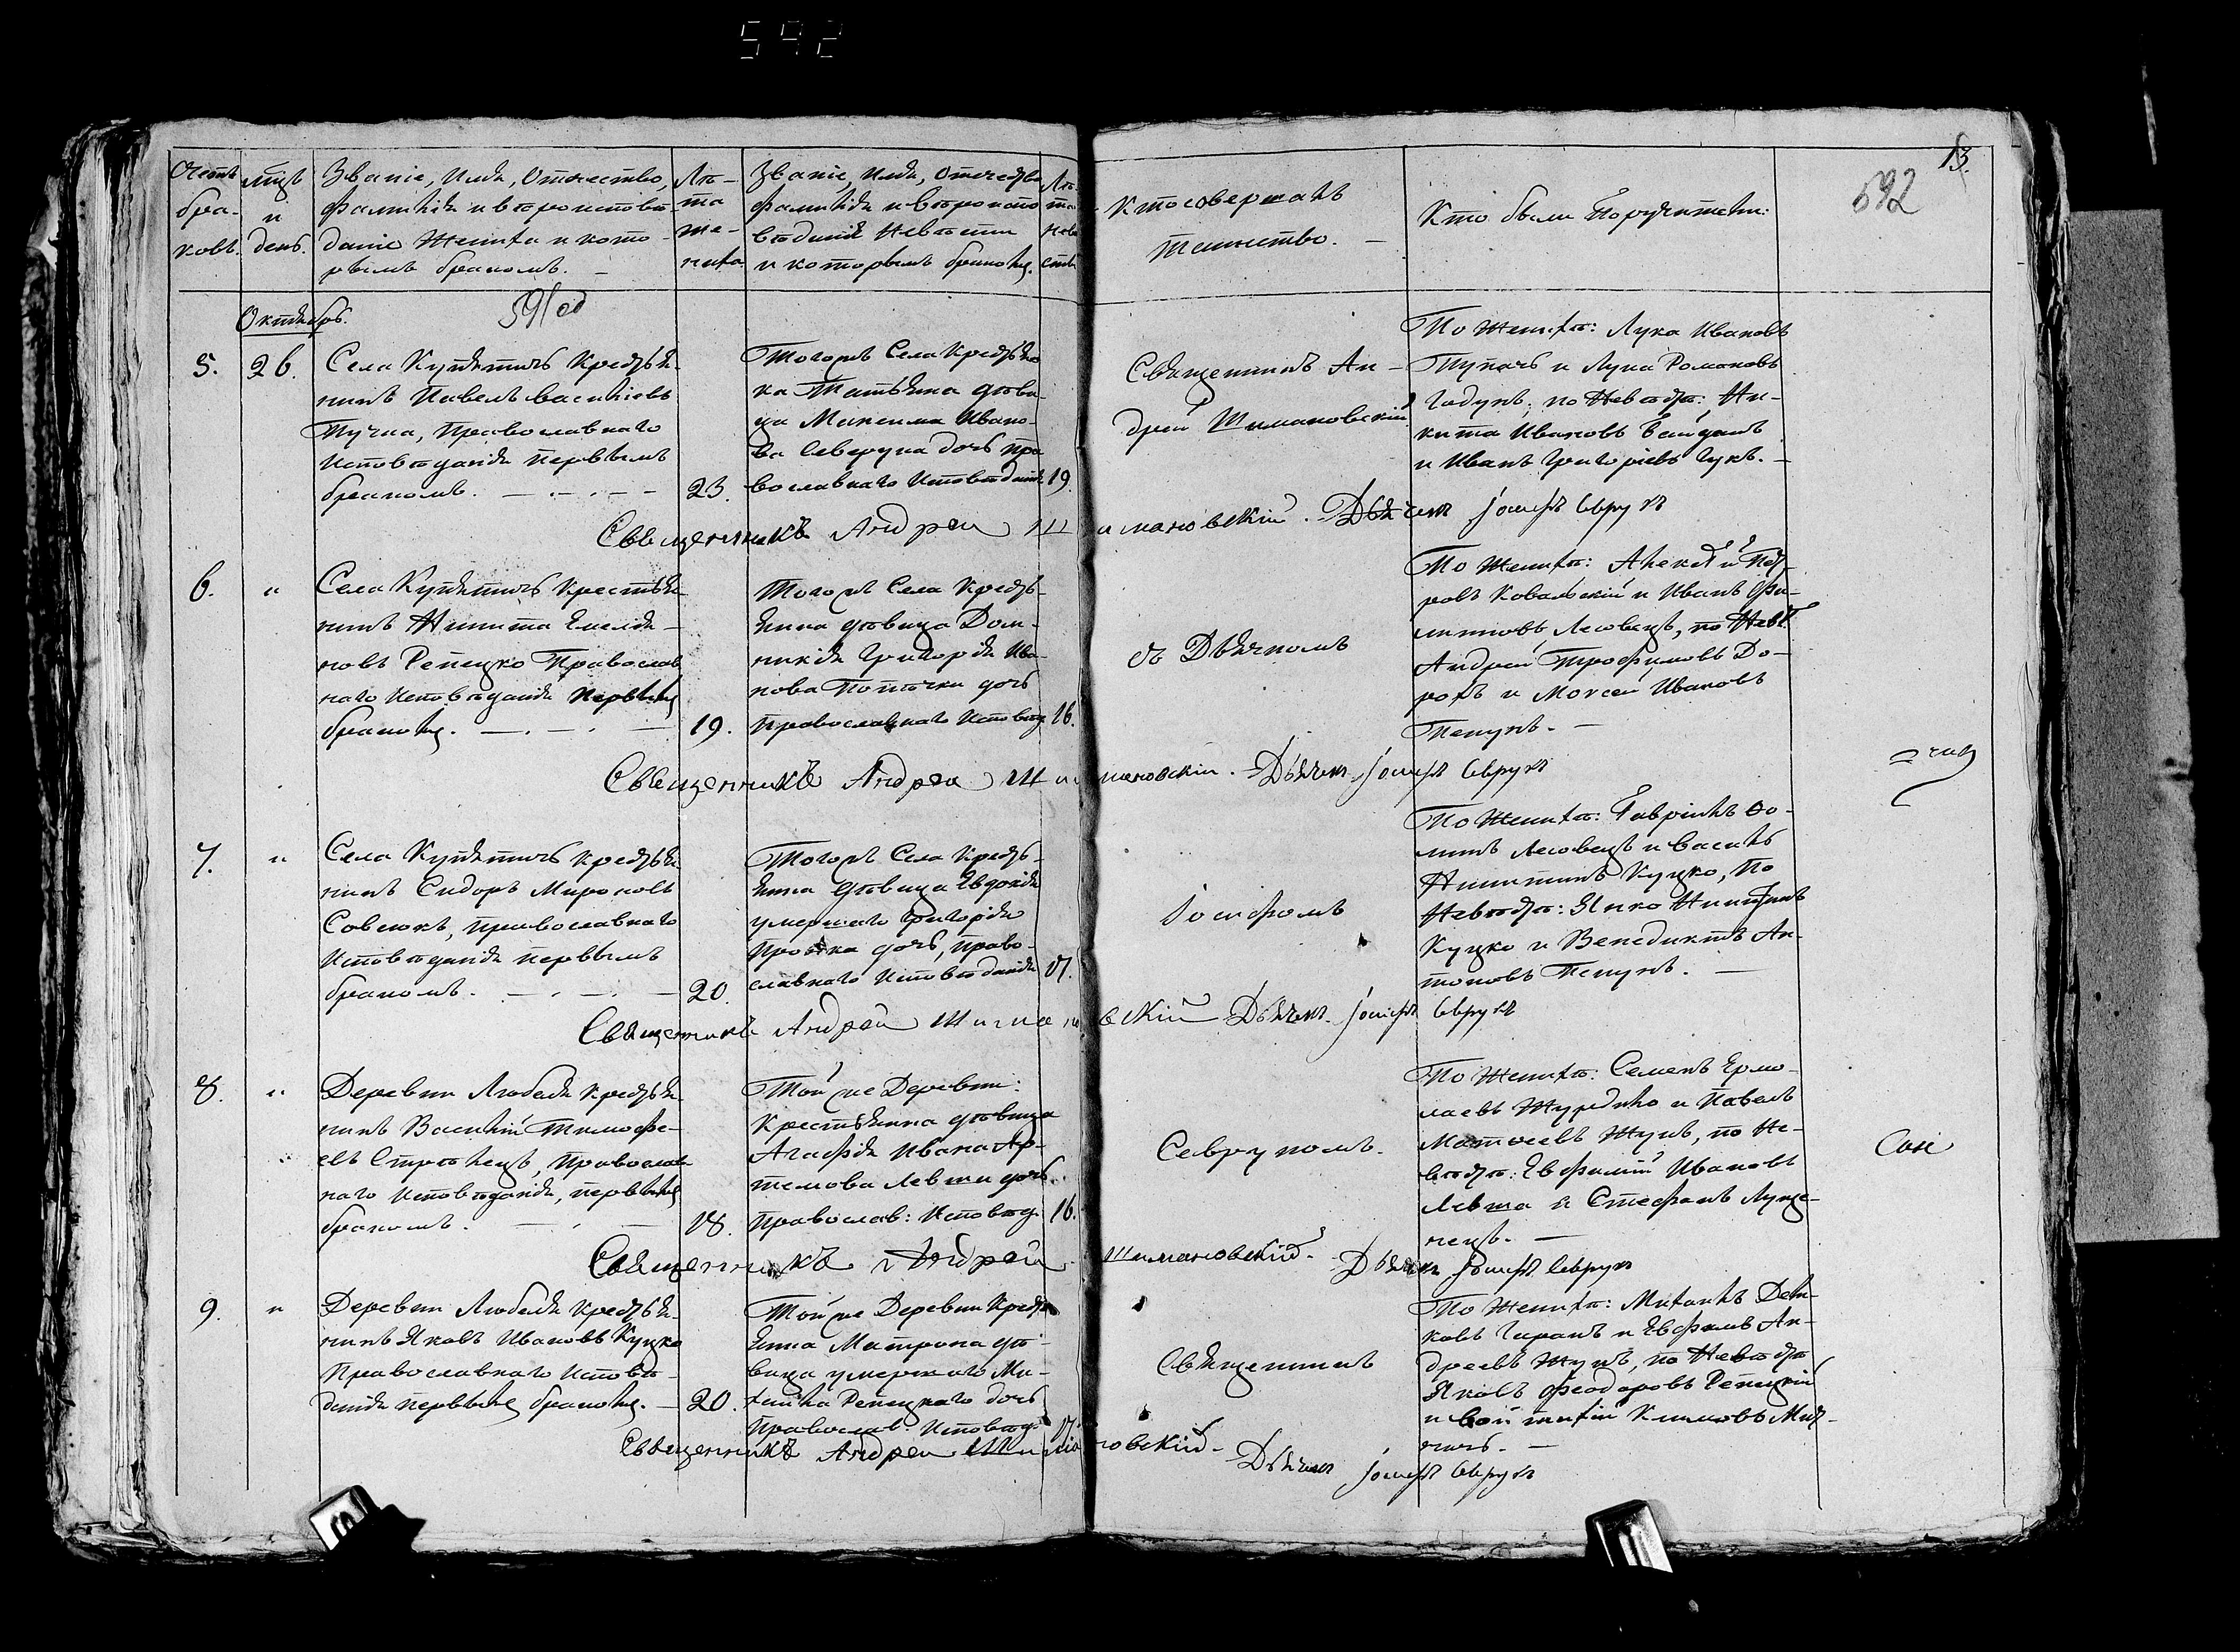 592
13.
592
Счетъ бра- ковъ.
мцъ и день.
Званіе, Имя, Отчество,
фамилія и вѣроисповѣ-
даніе Жениха и кото-
рымъ бракомъ. —
Лѣ- та же- ниха
Званіе, Имя, Отечество
фамилія и вѣроиспо
вѣданіе Невѣсты
и которымъ бракомъ.
Лѣ- та невѣ сты
Кто совершалъ
таинство. —
Кто были Поручители:
Октябрь.
591 об
5.
26.
Села Купятичъ Крестья-
нинъ Павелъ Васильевъ
Пучка, Православнаго
Исповѣданія первымъ
бракомъ. — . — . — —
23.
Тогожъ Села Крестьян
ка Татьяна дѣви-
ца Максима Ивано-
ва Северука дочь пра
вославнаго Исповѣданія
19.
Священникъ Ан-
дрей Шимановскій
По Женихѣ: Лука Ивановъ
и Лука Романовъ
по Невѣстѣ: Ни-
кита Ивановъ
и Иванъ Григоріевъ —
Священникъ Андрей Шимановскій. Дьячекъ Іосифъ Севрукъ
6.
"
Села Купятичъ Крестья-
нинъ Никита Емелья-
новъ Репецко Православ
наго Исповѣданія первымъ
бракомъ. — . — . —
19.
Тогожъ Села Кресть-
янка дѣвица Дом-
никія Григорія Ива-
нова дочь
православнаго Исповѣд.
16.
съ Дьячкомъ
По Женихѣ: Алексѣй Пет-
ровъ Ковальскій и Иванъ Фи-
липовъ Лесовецъ, по Невѣ
Андрей Трофимовъ До-
рохъ и Моисей Ивановъ
Пепукъ. —
Священникъ Андрей Шимановскій. Дьячекъ Іосифъ Севрукъ
7.
"
Села Купятичъ Крестья
нинъ Сидоръ Мироновъ
Совенокъ, православнаго
Исповѣданія первымъ
бракомъ. — . — . —
20.
Тогожъ Села Кресть-
янка дѣвица Евдокія
умершаго Григорія
дочь, право-
славнаго Исповѣданія
17.
Іосифомъ
По Женихѣ: Гавріилъ Фо-
минъ Лесовецъ и Василь
Никитинъ Куцко, По
Невѣстѣ: Янко Никитинъ
Куцко и Венедиктъ Ан-
тоновъ Пепукъ. —
Священникъ Андрей Шимановскій Дьячекъ Іосифъ Севрукъ
8.
"
Деревни Любеля Крестья
нинъ Василій Тимофе-
евъ Стрѣлецъ, Православ
наго Исповѣданія, первымъ
бракомъ. — . —
18.
Той же Деревни:
Крестьянка дѣвица
Агафія Ивана Ар-
темова Левши дочь
Православ: Исповѣд.
16.
Севрукомъ.
По Женихѣ: Семенъ Ермо-
лаевъ и Павелъ
Матвеевъ Жукъ, по Не-
вѣстѣ: Евфимій Ивановъ
Левша и Стефанъ Луце-
нецъ. —
Священникъ Андрей Шимановскій. Дьячекъ Іосифъ Севрукъ
9.
"
Деревни Любеля Крестья-
нинъ Яковъ Ивановъ Куцко
Православнаго Исповѣ-
данія первымъ бракомъ. —
20.
Той же Деревни Кресть
янка Матрона дѣ-
вица умершаго Ми-
хаила Репецкаго дочь
Православ. Исповѣд.
17.
Священникъ
По Женихѣ: Михаилъ
и Евфимъ Ан-
дреевъ Жукъ, по Невѣстѣ
Яковъ Феодоровъ Репецкій
и Климовъ
Священникъ Андрей Шимановскій. Дьячекъ Іосифъ Севрукъ